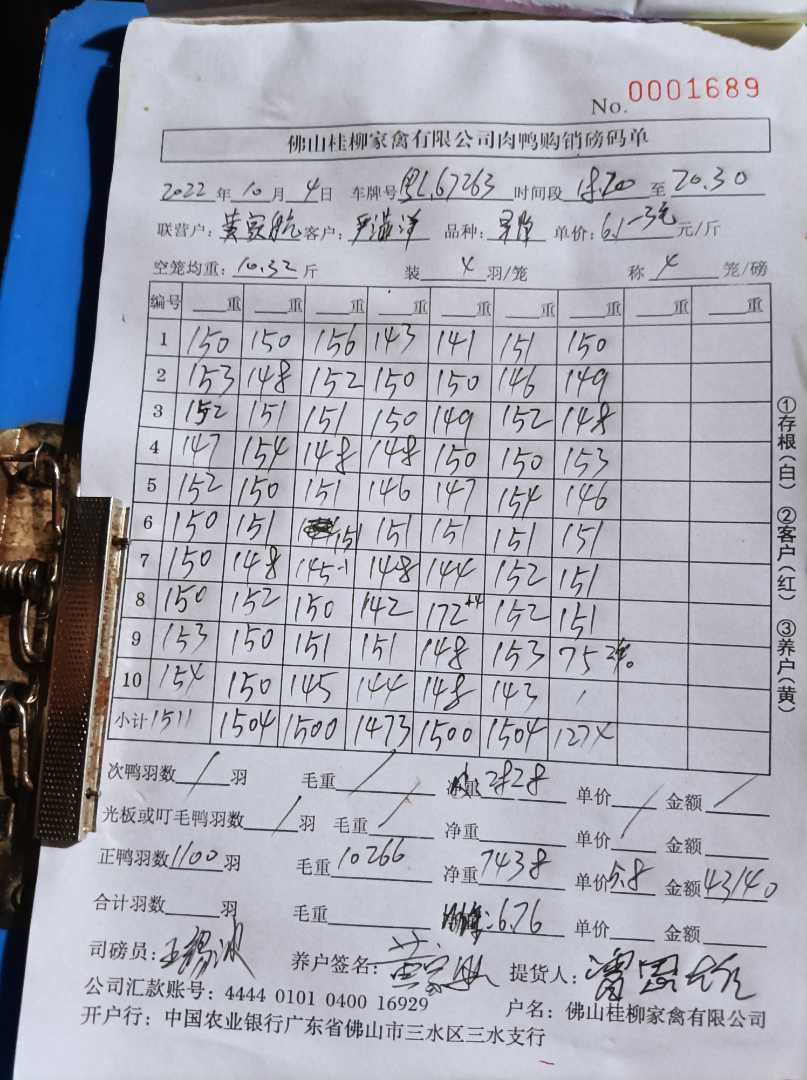 No. 0001689
佛山桂柳家禽有限公司肉鸭购销磅码单
2022 年 10 月 4 日 车牌号 粤L67263 时间段 18.20 至 20.30
联营户: 黄家航 客户: 严满洋 品种: 单价: 6.1 元/斤
空笼均重: 10.32 斤 装 4 羽/笼 称 4 笼/磅
编号 重 重 重 重 重 重 重 重 重
1 150 150 156 143 141 151 150
2 153 148 152 150 150 146 149
3 152 151 151 150 149 152 148
4 147 154 148 148 150 150 153
5 152 150 151 146 147 154 146
6 150 151 151 151 151 151 151
7 150 148 145-1 148 144 152 151
8 150 152 150 142 172+4 152 151
9 153 150 151 151 148 153 75
10 154 150 145 144 148 143 /
小计 1511 1504 1500 1473 1500 1504 1274
次鸭羽数 / 羽 毛重 / 2828 单价 / 金额 /
光板或叮毛鸭羽数 / 羽 毛重 / 净重 单价 / 金额
正鸭羽数 1100 羽 毛重 10266 净重 7438 单价 5.8 金额 43140
合计羽数 羽 毛重 : 6.76 单价 金额
司磅员: 养户签名: 黄家航 提货人:
公司汇款账号: 4444 0101 0400 16929 户名: 佛山桂柳家禽有限公司
开户行: 中国农业银行广东省佛山市三水区三水支行
①存根(白) ②客户(红) ③养户(黄)